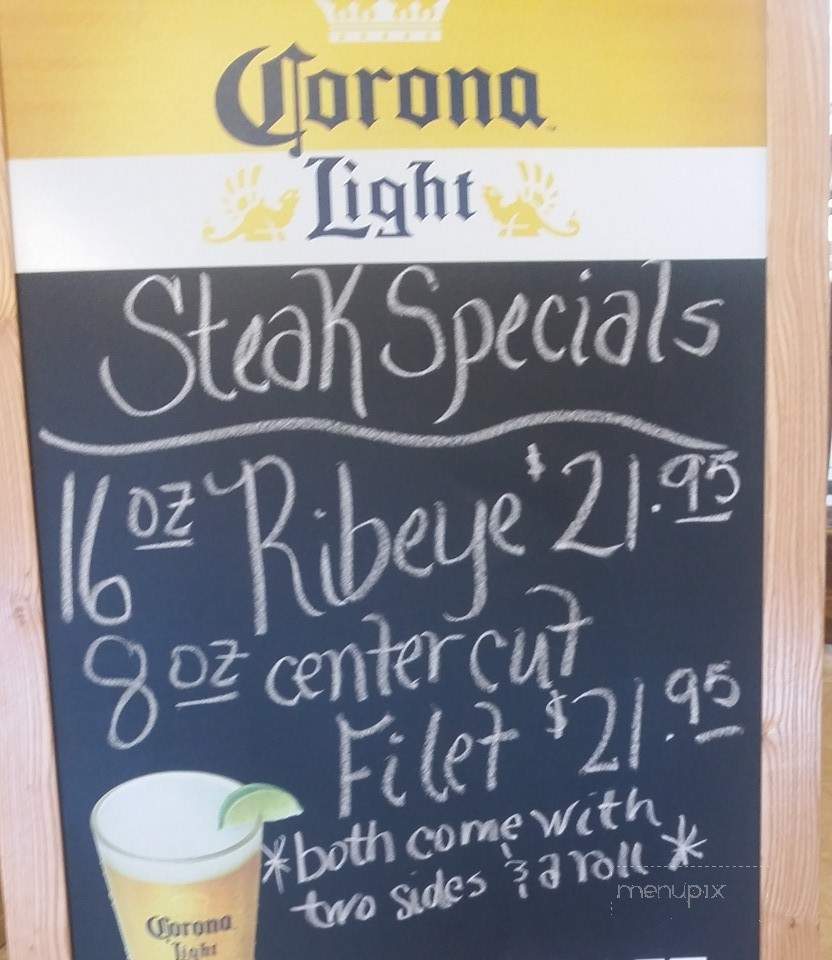 Corona
Light
Steak Specials
16 oz Ribeye $21.95
8 oz center cut
Filet $21.95
*both come with
two sides & a roll*
menupix
Corona
Light